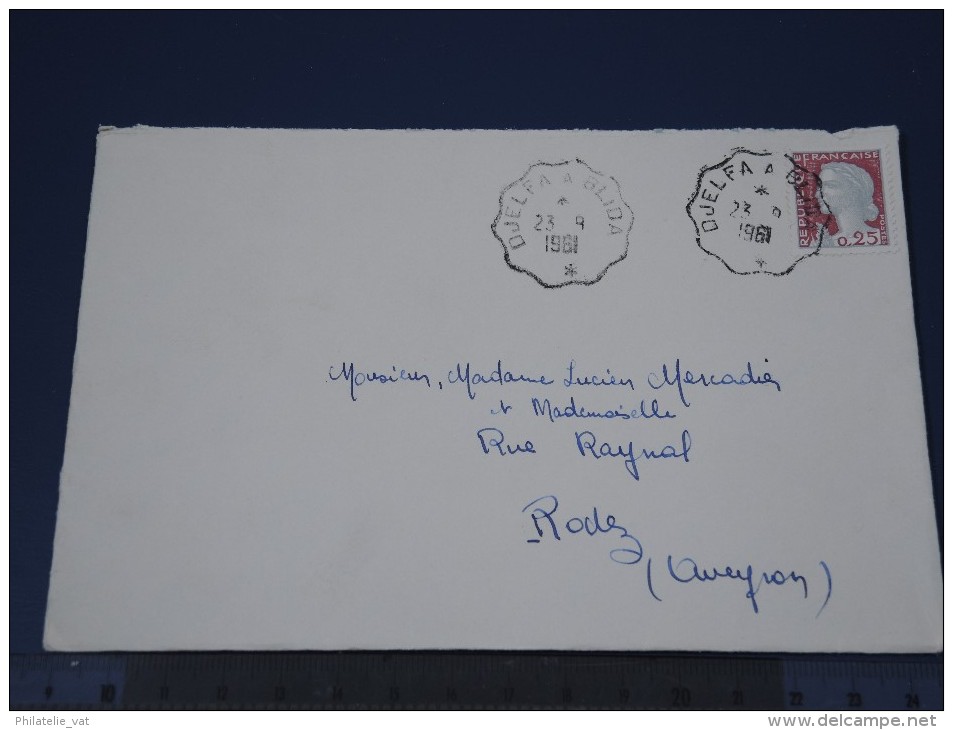 DJELFA A BLIDA
23 9
1961
DJELFA A BLIDA
23 9
1961
REPUBLIQUE FRANCAISE
POSTES
0,25
Monsieur, Madame Lucien Mercadier
et Mademoiselle
Rue Raynal
Rodez
(Aveyron)
9 10 11 12 13 14 15 16 17 18 19 20 21 22 23 24
Philatelie_vat
delcampe.net